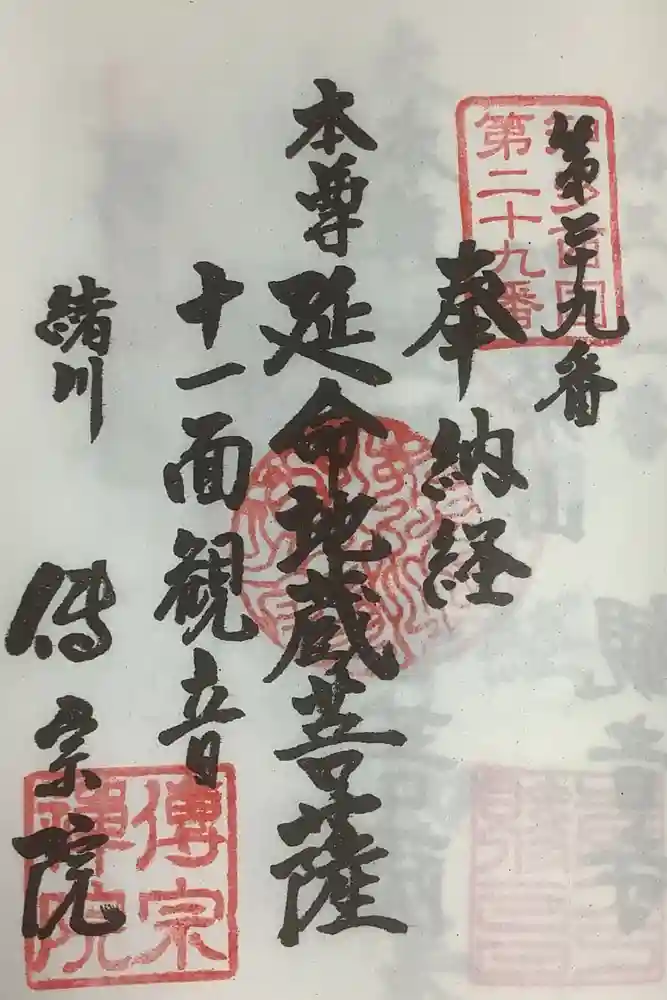 第二十九番
第二十九番
奉納経
本尊延命地蔵菩薩
十一面観音
緒川
傳宗院
傳宗
禅院